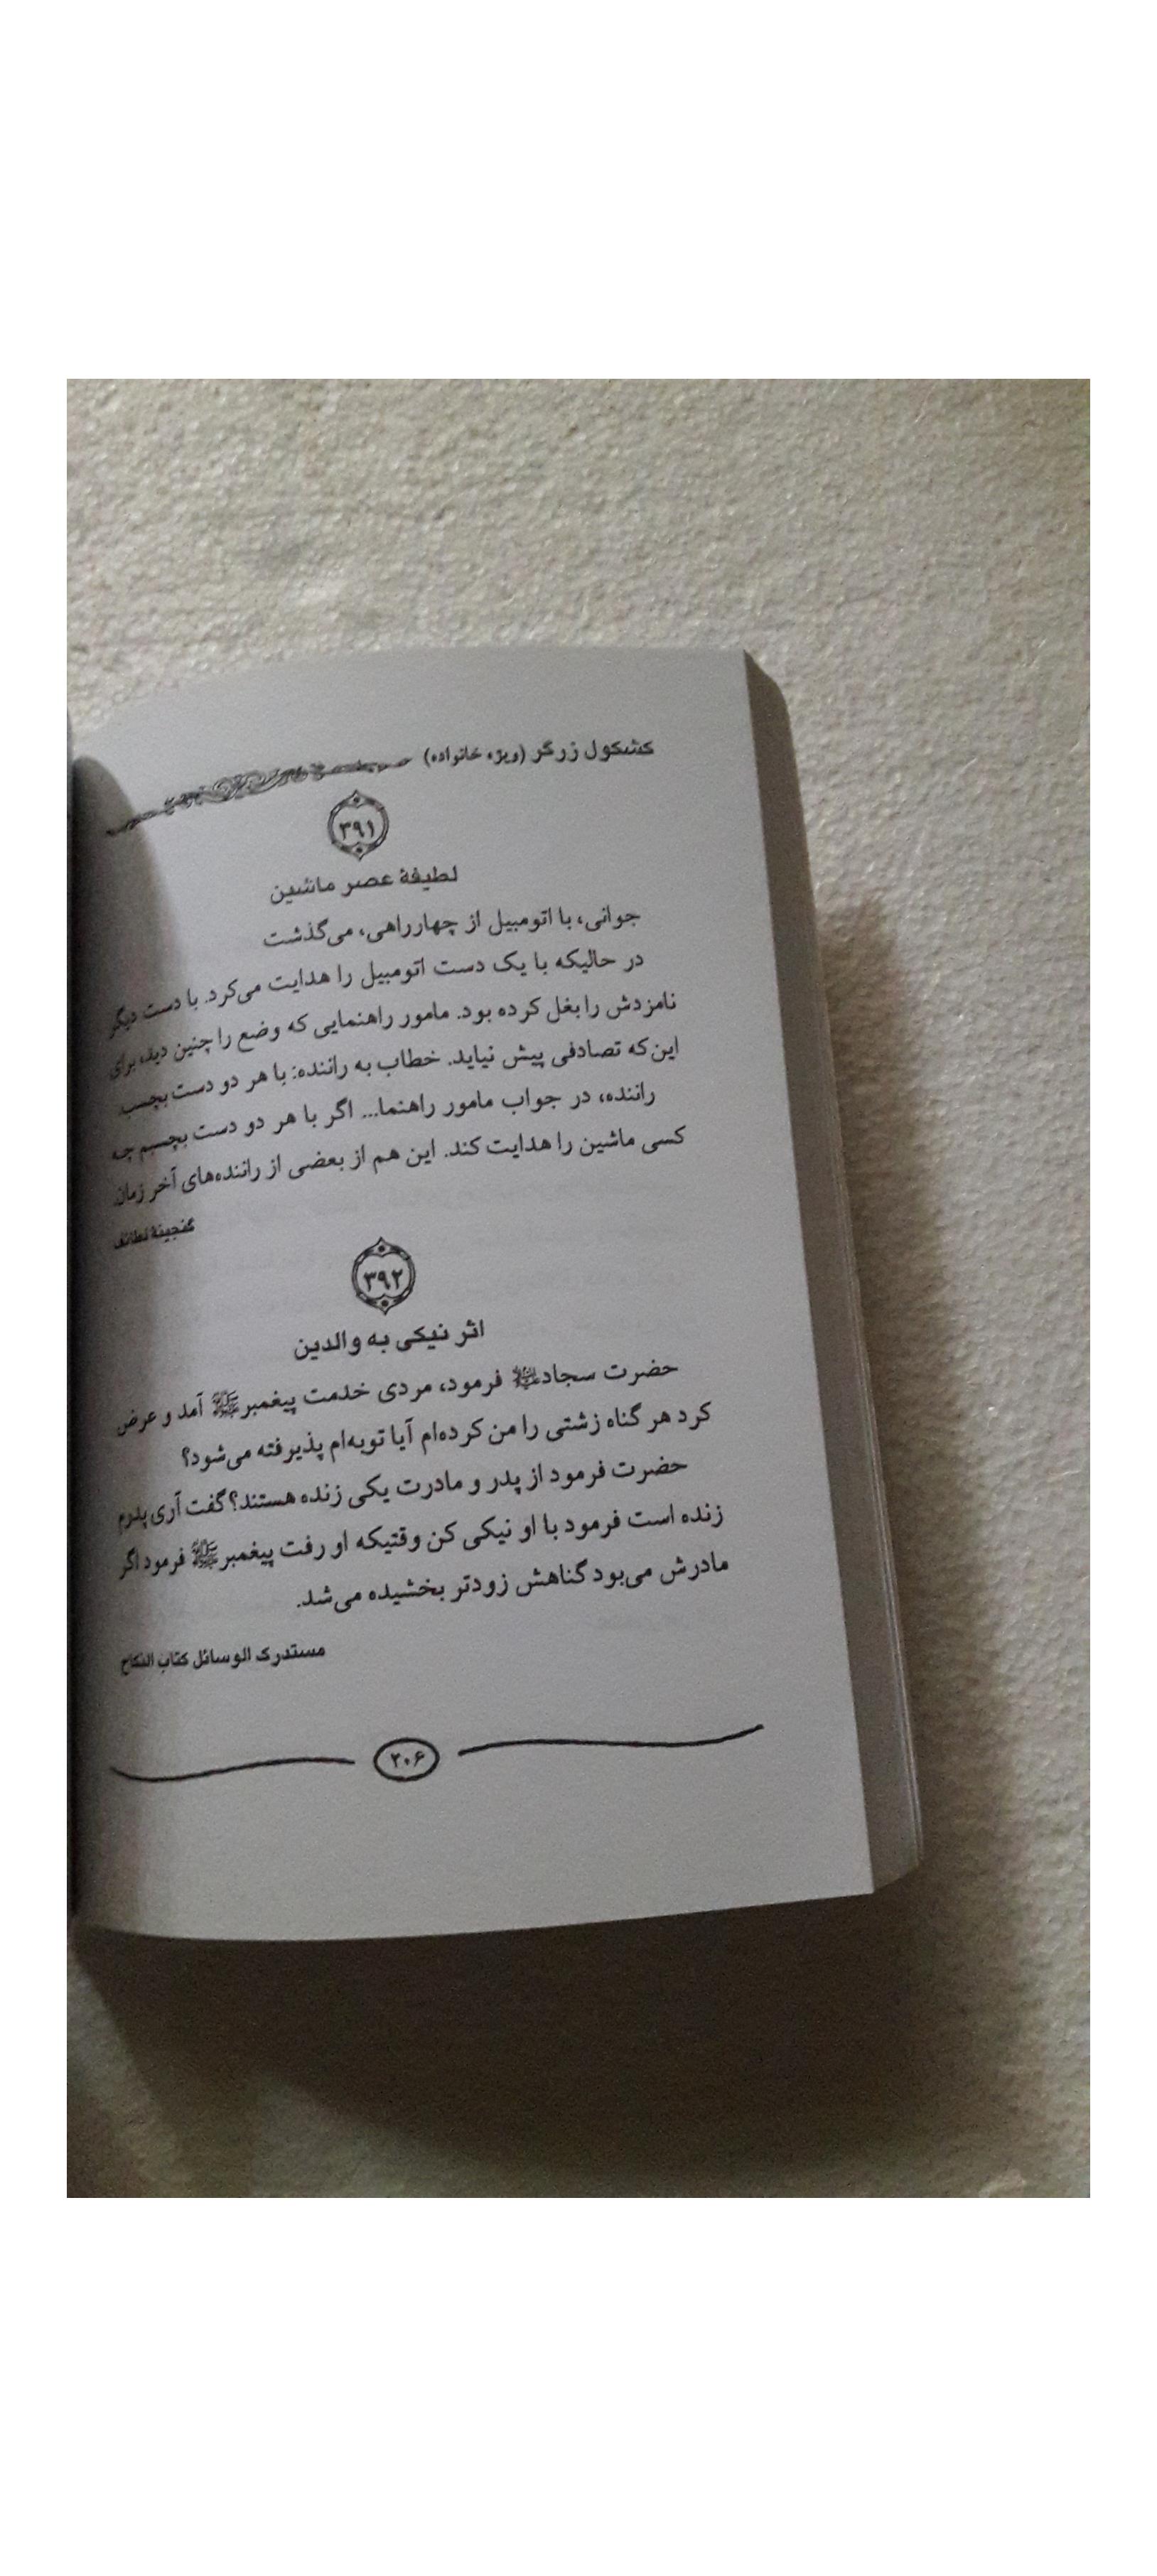 کشکول زرگر (ویژه خانواده)
۳۹۱
لطیفهٔ عصر ماشین
جوانی، با اتومبیل از چهارراهی، می‌گذشت
در حالیکه با یک دست اتومبیل را هدایت می‌کرد. با دست دیگر
نامزدش را بغل کرده بود. مامور راهنمایی که وضع را چنین دید، برای
این‌که تصادفی پیش نیاید. خطاب به راننده: با هر دو دست بچسب.
راننده، در جواب مامور راهنما... اگر با هر دو دست بچسبم چه
کسی ماشین را هدایت کند. این هم از بعضی از راننده‌های آخر زمان.
گنجینهٔ لطائف
۳۹۲
اثر نیکی به والدین
حضرت سجاد فرمود، مردی خدمت پیغمبرﷺ آمد و عرض
کرد هر گناه زشتی را من کرده‌ام آیا توبه‌ام پذیرفته می‌شود؟
حضرت فرمود از پدر و مادرت یکی زنده هستند؟ گفت آری پدرم
زنده است فرمود با او نیکی کن وقتیکه او رفت پیغمبرﷺ فرمود اگر
مادرش می‌بود گناهش زودتر بخشیده می‌شد.
مستدرک الوسائل کتاب النکاح
۲۰۶